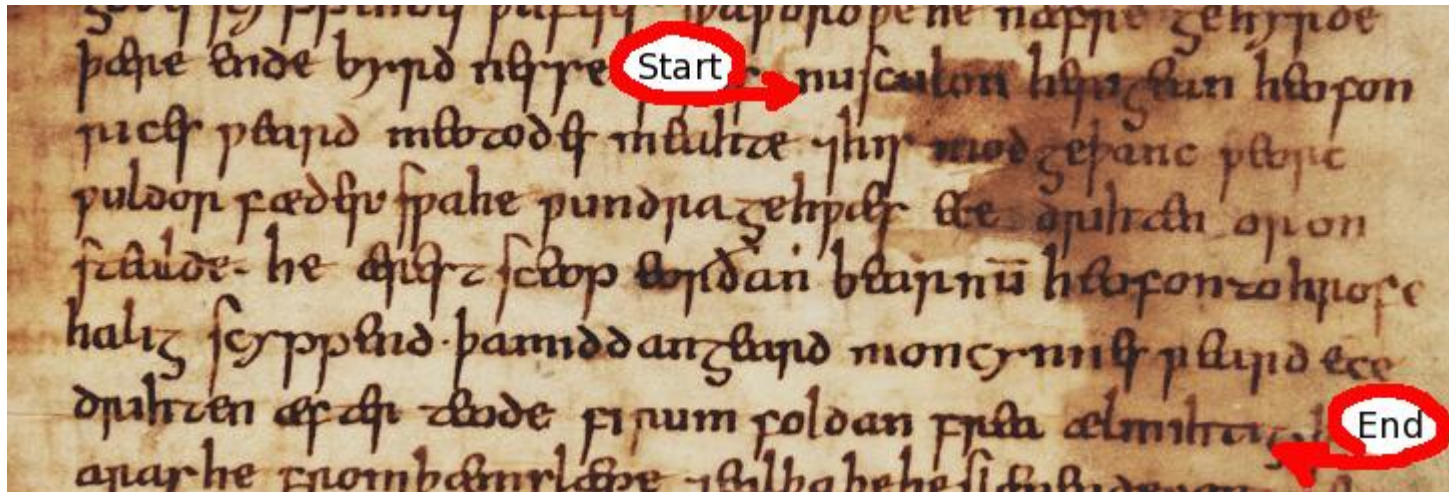 næfre gehyrde
þære ende byrd nesse Start nu sculon herigean heofon
rices ƿeard meotodes meahte ⁊his mod geþanc ƿeorc
ƿuldor fæder sƿa he ƿundra gehƿæs ece drihten or on
stealde. he ærest sceop eorðan bearnū heofon to hrofe
halig scyppend. þa middangeard moncynnes ƿeard ece
drihten æfter teode firum foldan frea ælmihtig End
aras he from þæm slæpe ⁊eal þa þe he